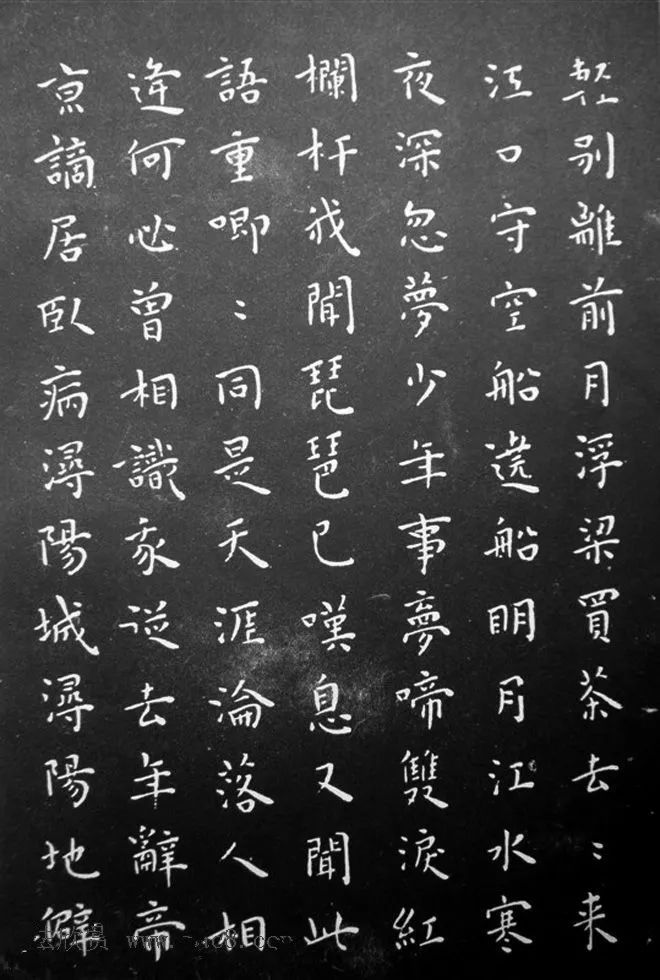 輕別離前月浮梁買茶去〻来
江口守空船遶船眀月江水寒
夜深忽夢少年事夢啼雙淚紅
欄杆我聞琵琶已嘆息又聞此
語重唧〻同是天涯淪落人相
逢何必曾相識我從去年辭帝
京謫居臥病潯陽城潯陽地僻